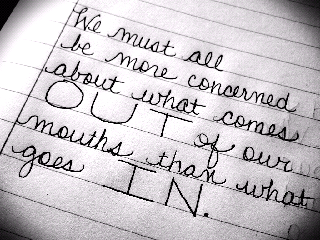 We must all
be more concerned
about what comes
OUT of our
mouths than what
goes IN.